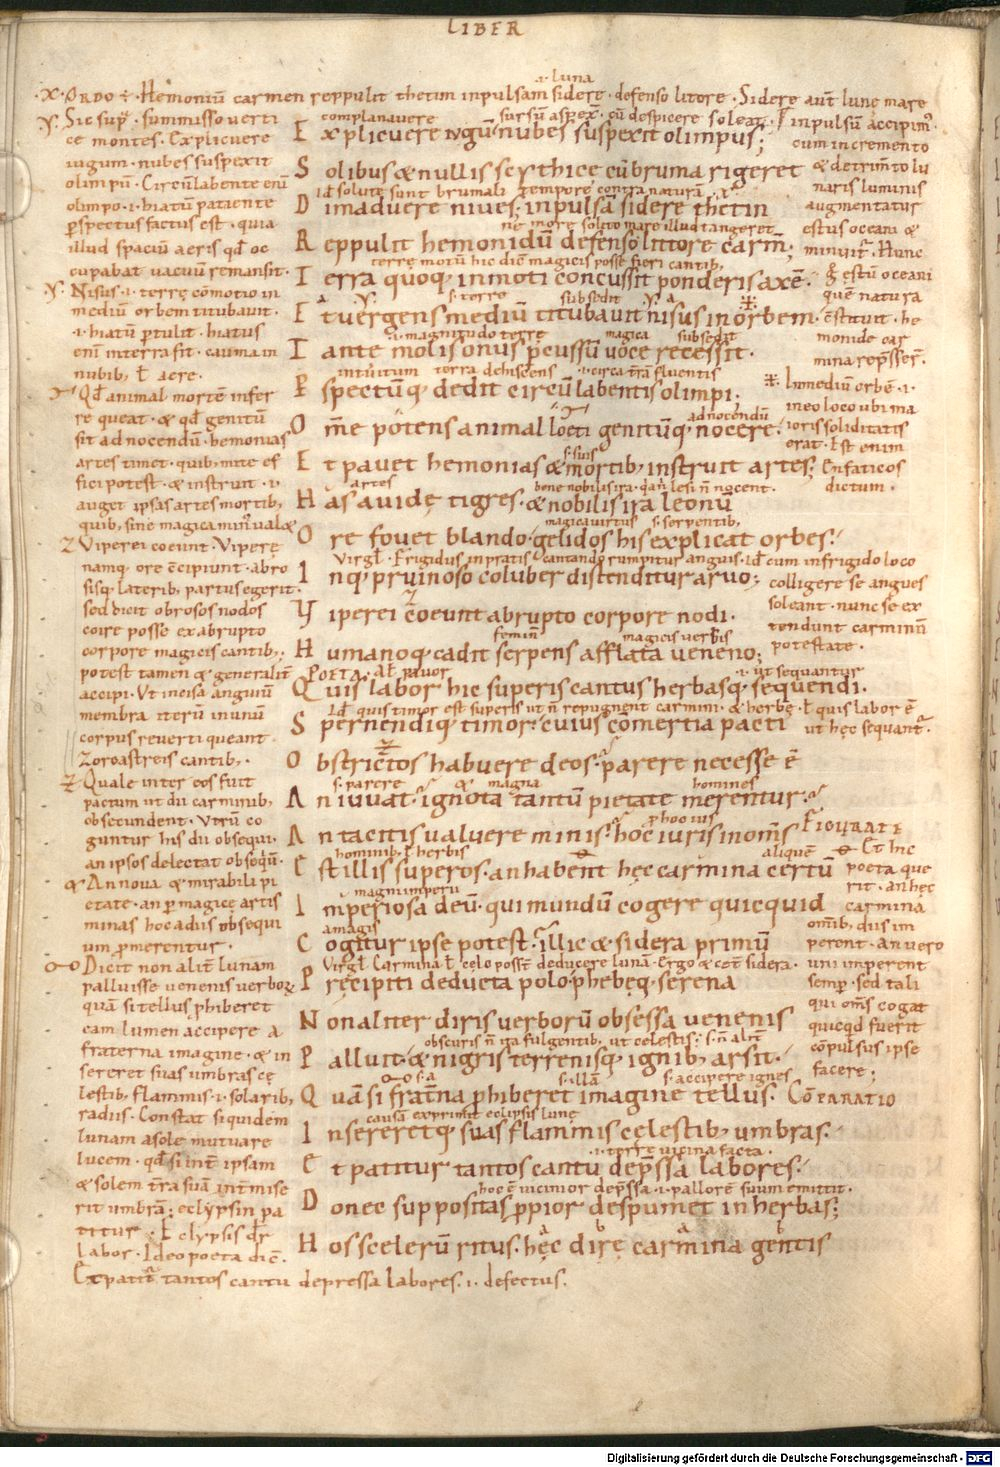 LIBER
·X· ORDO ÷ Hemoniū carmen reppulit thetim inpulsam sidere · defenso litore · Sidere aut̄ lune mare
·i· luna
inpulsū accipim᾽
cum incremento
& detrim̄to lu
naris luminis
augmentatur
estus oceani &
minuit᾽ · Hunc
ḡ estū oceani
quē natura
ēstituit · he
monide car
mina rep̄sser̄ ·
Inmediū orbē · i ·
ineo loco ubi ma
ioris soliditatis
erat · Est enim
Enfaticos
dictum ·
Sic sup᾽ · summisso uerti
ce montes · Explicuere
iugum · nubes suspexit
olimpū · Circūlabente enī
olimpo · i · hiatū patiente
p̱spectus factus est · quia
illud spaciū aeris qd̄ oc
cupabat uacuū remansit ·
Nisus · i · terrę cōmotio in
mediū orbem titubauit ·
· i · hiatū p̱tulit · hiatus
enī interra fit · cauma in
nubib; ł aere ·
Qd̄ animal mortē infer
re queat · & qd̄ genitū
sit ad nocendū · hemonias
artes timet · quib; mite ef
fici potest · & instruit · i·
auget ipsas artes mortib;
quib; sine magica min᾽ ual&
Viperei coeunt · Viperę
namq; ore c̄cipiunt · abro
sisq; laterib; partus egerit ·
sed dicit obrosos nodos
coire posse ex abrupto
corpore magicis cantib; ·
potest tamen & generalit̄
accipi · Ut incisa anguiū
membra iterū inunū
corpus reuerti queant
Zoroastreis cantib; ·
Quale inter eos fuit
pactum ut dii carminib;
obsecundent · Utrū co
guntur his dii obsequi ·
an ipsos delectat obseq̄ū ·
An noua & mirabili pi
etate · an p̱ magicę artis
minas hoc adiis obsequi
um p̱merentur ·
Dicit non alit̄ lunam
palluisse uenenis uerborꝝ
quā si tellus p̱hiberet
eam lumen accipere a
fraterna imagine · & in
sereret suas umbras cę
lestib; flammis · i · solarib;
radiis · Constat siquidem
lunam a sole mutuare
lucem · qd̄ si int̄ ipsam
& solem t̄ra suā int̄mise
rit umbrā; eclypsin pa
titur · Eclypsis d̄r
labor · Ideo poeta dic̄ ·
Et patit᾽ tantos cantu depressa labores · i · defectus ·
complanauere sursū aspex̄ · cū despicere soleat
Explicuere iugū nubes suspexit olimpus;
Solibus & nullis scythicę cū bruma rigeret
id̄ solutę sunt brumali tempore contra naturā
Dimaduere niues; inpulsā sidere thetin
ne more solito mare illud tangeret
Reppulit hemonidū defenso littore carm̄ ·
terre motū hic dic̄ magicis posse fieri cantib;
Terra quoq; inmoti concussit ponderis axē ·
s· terre subsedit
Et uergens mediū titubauit nisus in orbem ·
· i · magnitudo terre magica subsedit
Tante molis onus p̱cussū uoce recessit ·
intuitum terra dehiscens · i · circa t̄rā fluentis
P̱spectūq; dedit circū labentis olimpi ·
ad nocendū
Om̄e potens animal lęti genitūq; nocere ·
s· suis
Et pauet hemonias & mortib; instruit artes;
artes bene nobilis ira · quā n̄ lesi n̄ nocent ·
Has auidę tigres · & nobilis ira leonū
magica uirtus s· serpentib;
Ore fouet blando · gelidos his explicat orbes ·
Virgl̄ · Frigidus inpratis cantando rumpitur anguis · id̄ cum infrigido loco
Inq; pruinoso coluber distenditur aruo;
colligere se angues
soleant · nunc se ex
tendunt carminū
potestate ·
Viperei c̄oeunt abrupto corpore nodi ·
femin̄ magicis uerbis
Humanoq; cadit serpens afflata ueneno;
POETA · al̄ pauor · i · ut sequantur
Quis labor hic superis cantus herbasq; sequendi ·
Id̄ quis timor est superis ut n̄ repugnent carmini · & herbę · ł quis labor ē
ut hęc sequant᾽ ·
Spernendiq; timor · cuius comertia pacti
Obstrictos habuere deos · parere necesse ē
s· parere & magna homines
An iuuat · ignota tantū pietate merentur ·
p̱ hoc ius
An tacitis ualuere minis · hoc iuris inom̄s
FIGURATE
hominib; ł herbis aliquē
Est illis superos · an habent hęc carmina certū
Et hic
poeta que
rit · an hęc
carmina
om̄ib; diis im
perent · an uero
uni imperent
semp̱ · sed tali
qui om̄s cogat
quicqd fuerit
cōpulsus ipse
facere;
magni imperii
Imperiosa deū · qui mundū cogere quicquid
a magis
Cogitur ipse potest · illic & sidera primū
Virgl̄ Carmina ł cęlo posst̄ deducere lunā · Ergo & cet̄ sidera ·
Pręcipiti deducta polo · phebęq; serena
Non aliter diris uerborū obsessa uenenis
obscuris n̄ ita fulgentib; ut celestis; s· n̄ alit̄
Palluit · & nigris terrenisq; ignib; arsit ·
s· illā s· accipere ignes
Quā si frat̄na p̱hiberet imagine tellus · CŌPARATIO
causā exprimit eclipsis lunę
Insereretq; suas flammis cęlestib; umbras ·
· i · terrę uicina facta ·
Et patitur tantos cantu dep̄ssa labores ·
hoc ē uicinior dep̄ssa · i · pallorē suum emittit ·
Donec suppositas p̱pior despumet in herbas;
Hos scelerū ritus · hęc dirę carmina gentis
Digitalisierung gefördert durch die Deutsche Forschungsgemeinschaft - DFG